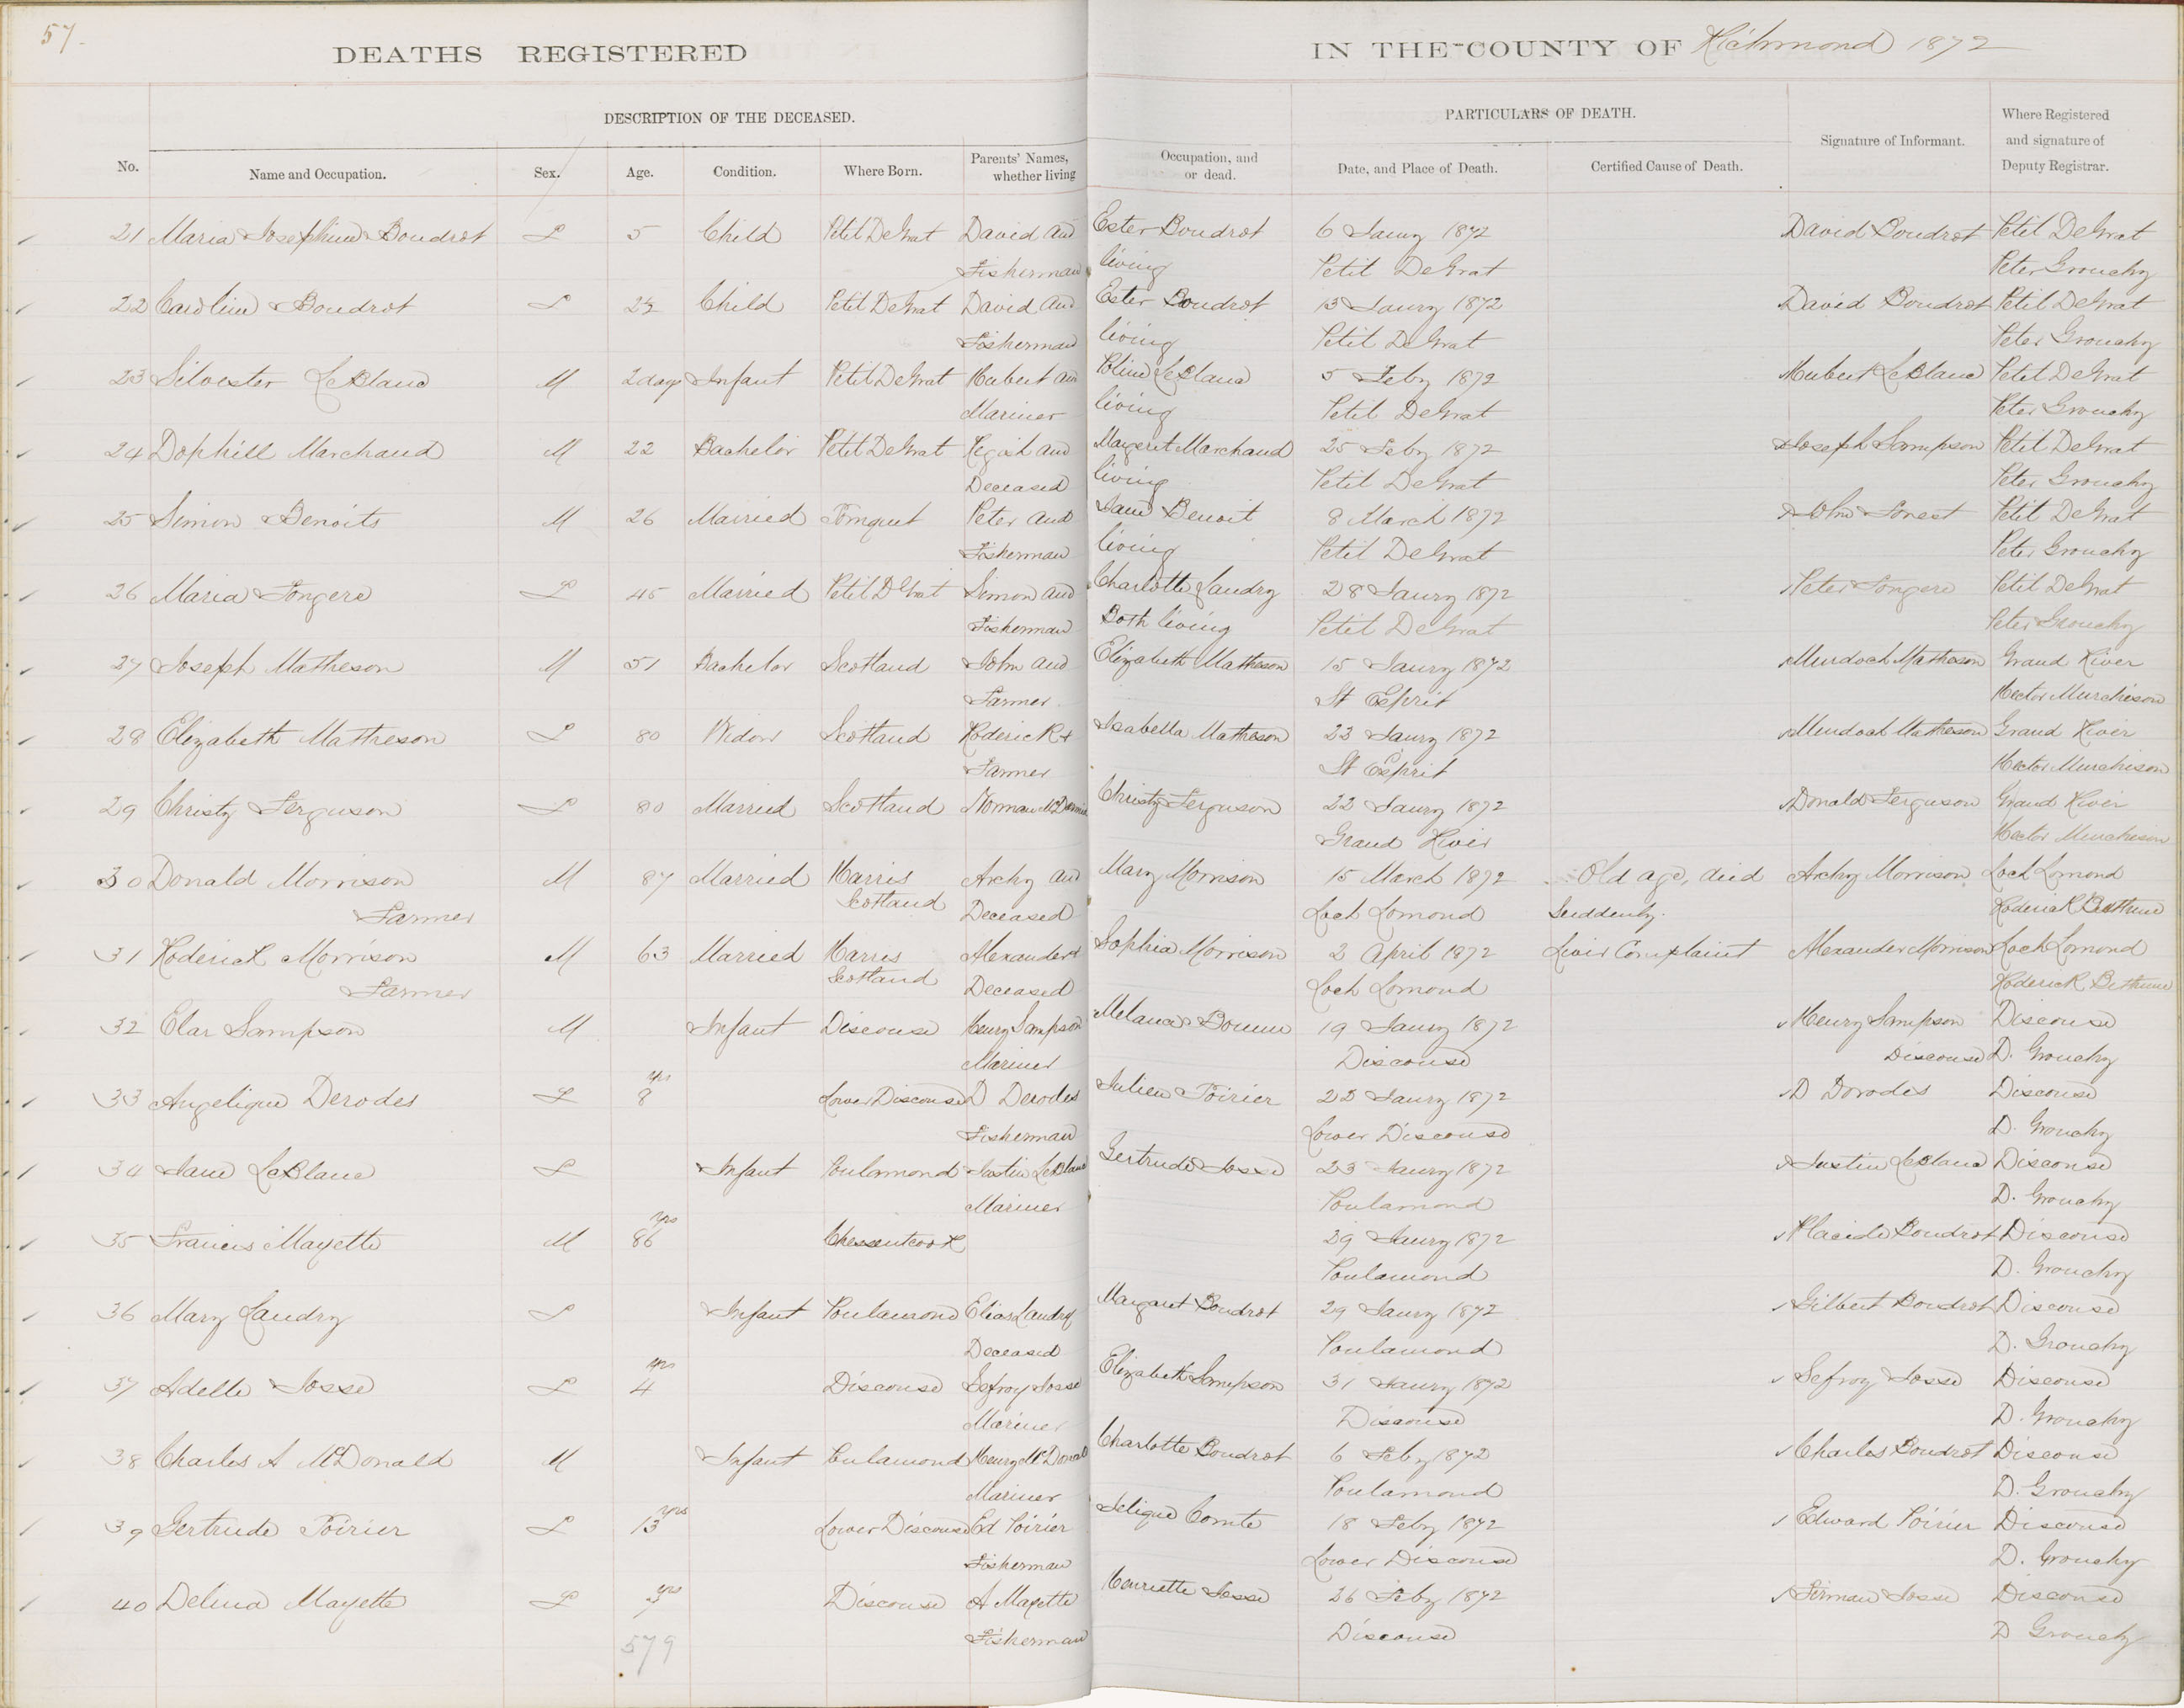 57.
DEATHS REGISTERED IN THE COUNTY OF Richmond 1872
DESCRIPTION OF THE DECEASED. PARTICULARS OF DEATH.
No. Name and Occupation. Sex. Age. Condition. Where Born. Parents' Names, whether living Occupation, and or dead. Date, and Place of Death. Certified Cause of Death. Signature of Informant. Where Registered and signature of Deputy Registrar.
21 Maria Josephine Boudrot F 5 Child Petit DeGrat David and Ester Boudrot 6 Jaury 1872 David Boudrot Petit DeGrat
Fisherman living Petit DeGrat Peter Grouchy
22 Caroline Boudrot F Child Petit DeGrat David and Ester Boudrot 13 Jaury 1872 David Boudrot Petit DeGrat
Fisherman living Petit DeGrat Peter Grouchy
23 Silvester LeBlanc M 2 days Infant Petit DeGrat Hubert and LeBlanc 5 Feby 1872 Hubert LeBlanc Petit DeGrat
Mariner living Petit DeGrat Peter Grouchy
24 Dophill Marchand M 22 Bachelor Petit DeGrat and Margerit Marchand 25 Feby 1872 Joseph Sampson Petit DeGrat
Deceased living Petit DeGrat Peter Grouchy
25 Simon Benoits M 26 Married Peter and Jane Benoit 8 March 1872 John Forest Petit DeGrat
Fisherman living Petit DeGrat Peter Grouchy
26 Maria Fongere F 45 Married Petit DeGrat Simon and Charlotte Landry 28 Jaury 1872 Peter Fongere Petit DeGrat
Fisherman Both living Petit DeGrat Peter Grouchy
27 Joseph Matheson M 51 Bachelor Scotland John and Elizabeth Matheson 15 Jaury 1872 Murdoch Matheson Grand River
Farmer St Esprit Hector Murchison
28 Elizabeth Matheson F 80 Widow Scotland Roderick + Isabella Matheson 23 Jaury 1872 Murdoch Matheson Grand River
Farmer St Esprit Hector Murchison
29 Christy Ferguson F 80 Married Scotland Norman Christy Ferguson 22 Jaury 1872 Donald Ferguson Grand River
Grand River Hector Murchison
30 Donald Morrison M 87 Married Harris Archy and Mary Morrison 15 March 1872 Old age, died Archy Morrison Loch Lomond
Farmer Scotland Deceased Loch Lomond Suddenly. Roderick Bethune
31 Roderick Morrison M 63 Married Harris Alexander + Sophia Morrison 2 April 1872 Liver Complaint Alexander Morrison Loch Lomond
Farmer Scotland Deceased Loch Lomond Roderick Bethune
32 Elar Sampson M Infant Discouse Henry Sampson 19 Jaury 1872 Henry Sampson Discouse
Mariner Discouse Discouse D. Grouchy
33 Angelique Derodes F 8 yrs Lower Discouse D Derodes Julien Poirier 22 Jaury 1872 D Dorodes Discouse
Fisherman Lower Discouse D. Grouchy
34 Jane LeBlanc F Infant Poulamond Justin LeBlanc Gertrude Josse 23 Jaury 1872 Justin LeBlanc Discouse
Mariner Poulamond D. Grouchy
35 Francis Mayette M 86 yrs Chessentcook 29 Jaury 1872 Placide Boudrot Discouse
Poulamond D. Grouchy
36 Mary Landry F Infant Poulamond Elias Landry Margaret Boudrot 29 Jaury 1872 Gilbert Boudrot Discouse
Deceased Poulamond D. Grouchy
37 Adelle Josse F 4 yrs Discouse Sefroy Josse Elizabeth Sampson 31 Jaury 1872 Sefroy Josse Discouse
Mariner Discouse D. Grouchy
38 Charles A McDonald M Infant Poulamond Henry McDonald Charlotte Boudrot 6 Feby 1872 Charles Boudrot Discouse
Mariner Poulamond D. Grouchy
39 Gertrude Poirier F 13 yrs Lower Discouse Ed Poirier Comte 18 Feby 1872 Edward Poirier Discouse
Fisherman Lower Discouse D. Grouchy
40 Delina Mayette F 3 yrs Discouse A Mayette Henriette Josse 26 Feby 1872 Firman Josse Discouse
579 Fisherman Discouse D Grouchy